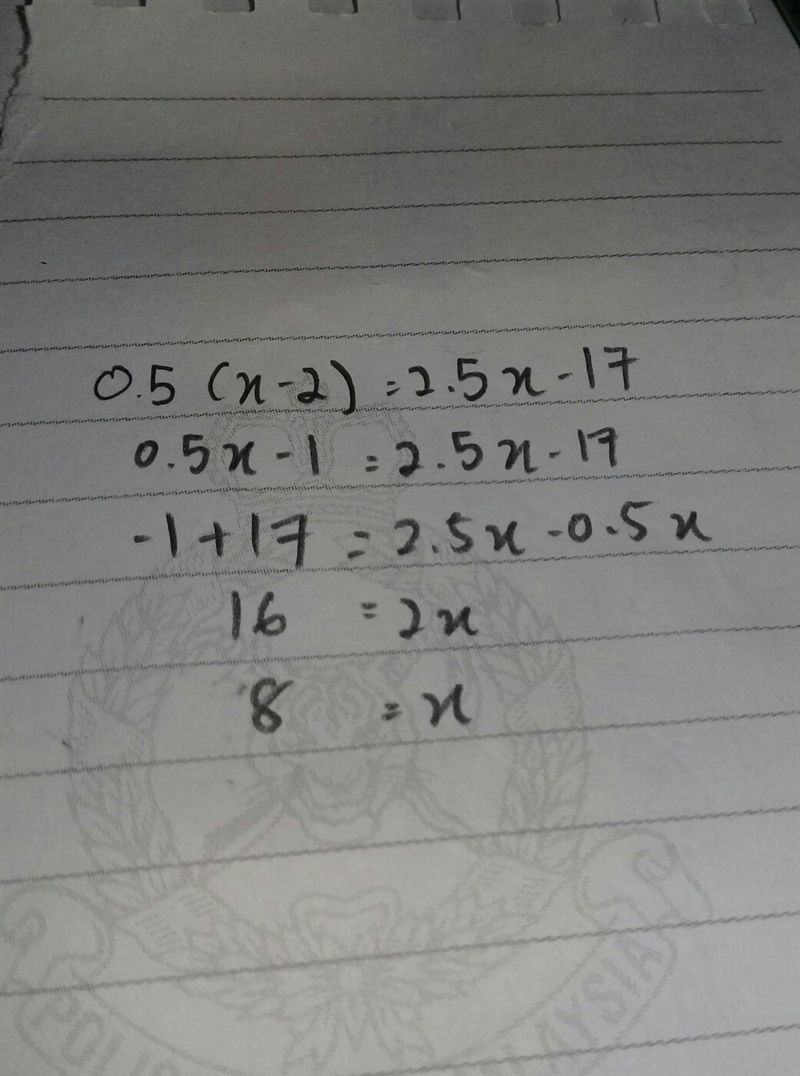 0.5 (x-2) = 2.5x - 17
0.5x - 1 = 2.5x - 17
-1 + 17 = 2.5x - 0.5x
16 = 2x
8 = x
POLIS